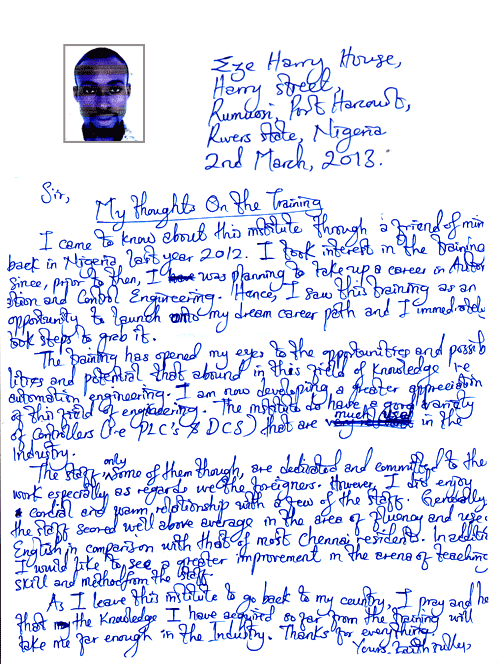 Eze Harry House,
Harry street,
Rumuosi, Port Harcourt,
Rivers state, Nigeria
2nd March, 2013.
Sir,
My Thoughts On the Training
I came to know about this institute through a friend of min
back in Nigeria, last year 2012. I took interest in the training
since, prior to then, I was planning to take up a career in Autom
ation and Control Engineering. Hence, I saw this training as an
opportunity to launch my dream career path and I immediately
took steps to grab it.
The training has opened my eyes to the opportunities and possib
lities and potential that abound in this field of knowledge i-e
automation engineering. I am now developing a greater appreciation
of this field of engineering. The institute do have a good variety
of controllers (i-e PLC's & DCS) that are much used in the
Industry.
The staff, only some of them though, are dedicated and committed to the
work especially as regards we the foreigners. However, I did enjoy
a cordial and warm relationship with a few of the staff. Generally
the staff scored well above average in the area of fluency and use of
English in comparison with that of most Chennai residents. In additio
I would like to see a greater improvement in the arena of teaching
skill and method from the staff.
As I leave this institute to go back to my country, I pray and ho
that the knowledge I have acquired so far from the training will
take me far enough in the Industry. Thanks for everything.
Yours faithfully,